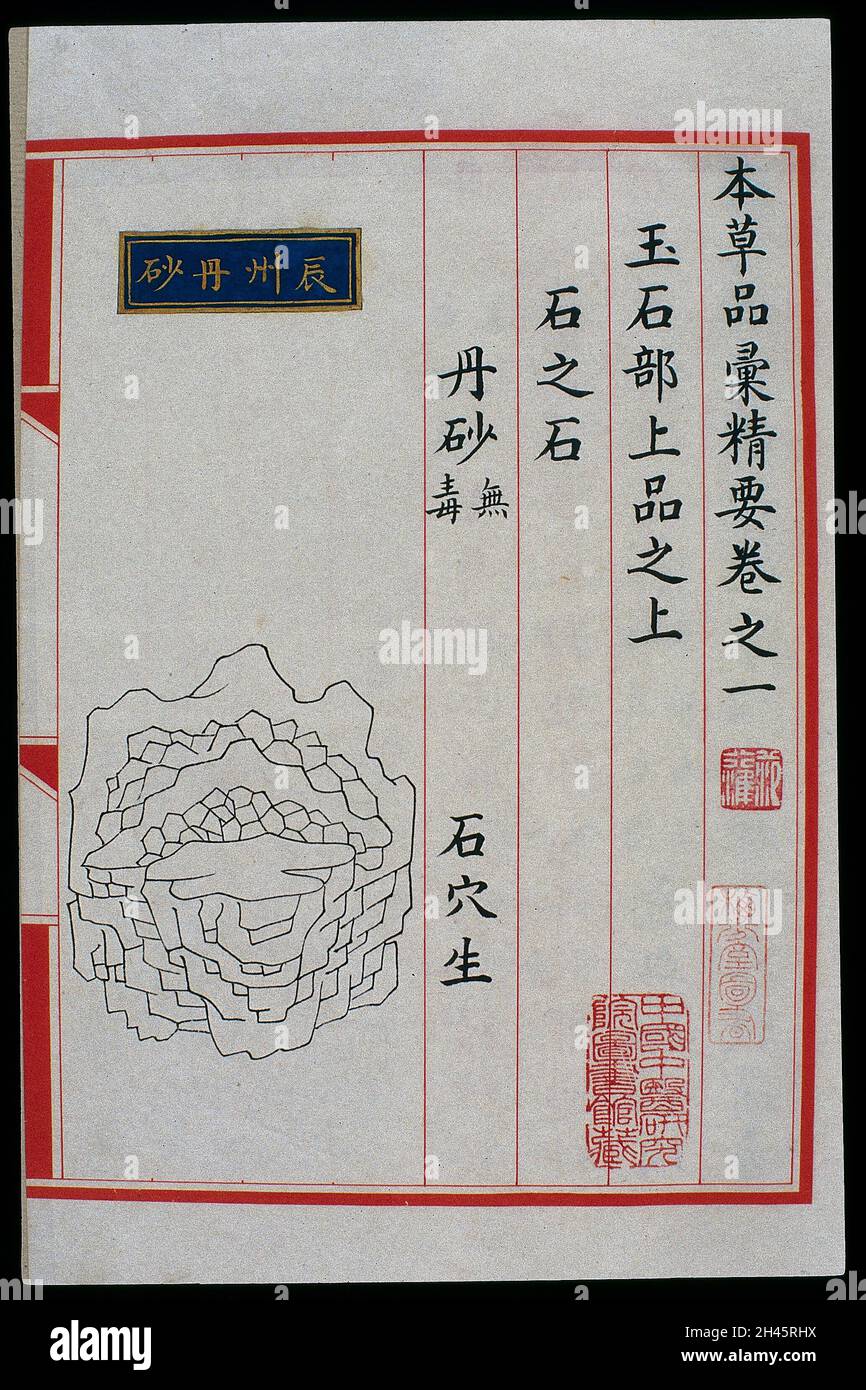 本草品彙精要卷之一
玉石部上品之上
石之石
丹砂 無毒
石穴生
辰州丹砂
中國中醫研究
院圖書館藏
alamy
Image ID: 2H45RHX
www.alamy.com